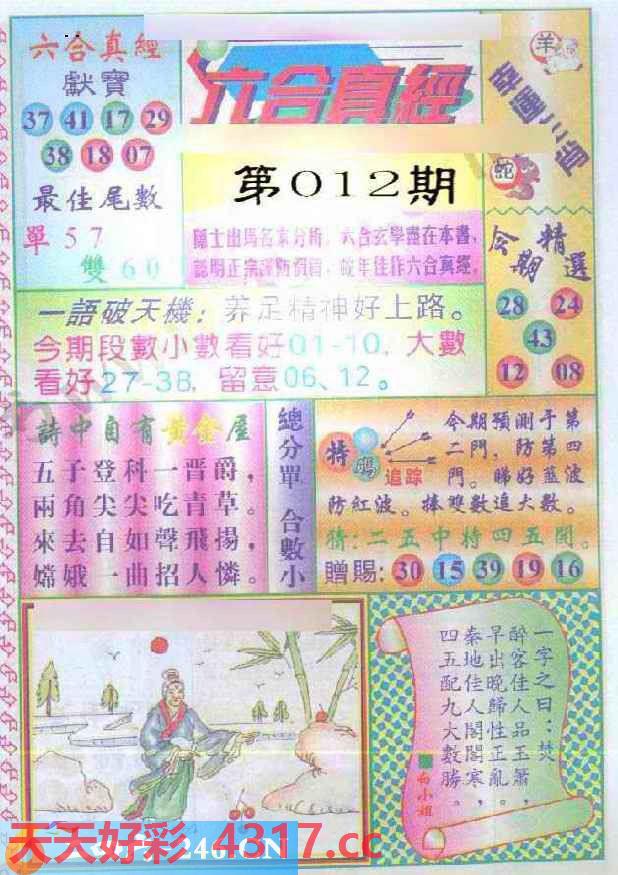 六合真經
獻寶
37 41 17 29
38 18 07
最佳尾數
單57
雙60
六合真經
第012期
隱士出馬名家分析,六合玄學盡在本書,
認明正宗謹防假冒,蛇年佳作六合真經。
羊
蛇
今期精選
28 24
43
12 08
一語破天機:养足精神好上路。
今期段數小數看好01-10,大數
看好27-38,留意06、12。
詩中自有黃金屋
五子登科一晋爵,
兩角尖尖吃青草。
來去自如聲飛揚,
嫦娥一曲招人憐。
總分單 合數小
特碼
追踪
今期預測于第
二門,防第四
門。睇好藍波
防紅波。捧雙數追大數。
猜:二五中特四五開。
贈賜:30 15 39 19 16
一字之曰:焚
醉客佳人品玉簫,
早出晚歸性正亂,
秦地佳人閣閣寒,
四五配九大數勝。
白小姐
246.CN
天天好彩 4317.cc